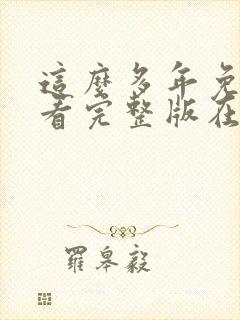 這麼多年免
看完整版在
羅皋毅